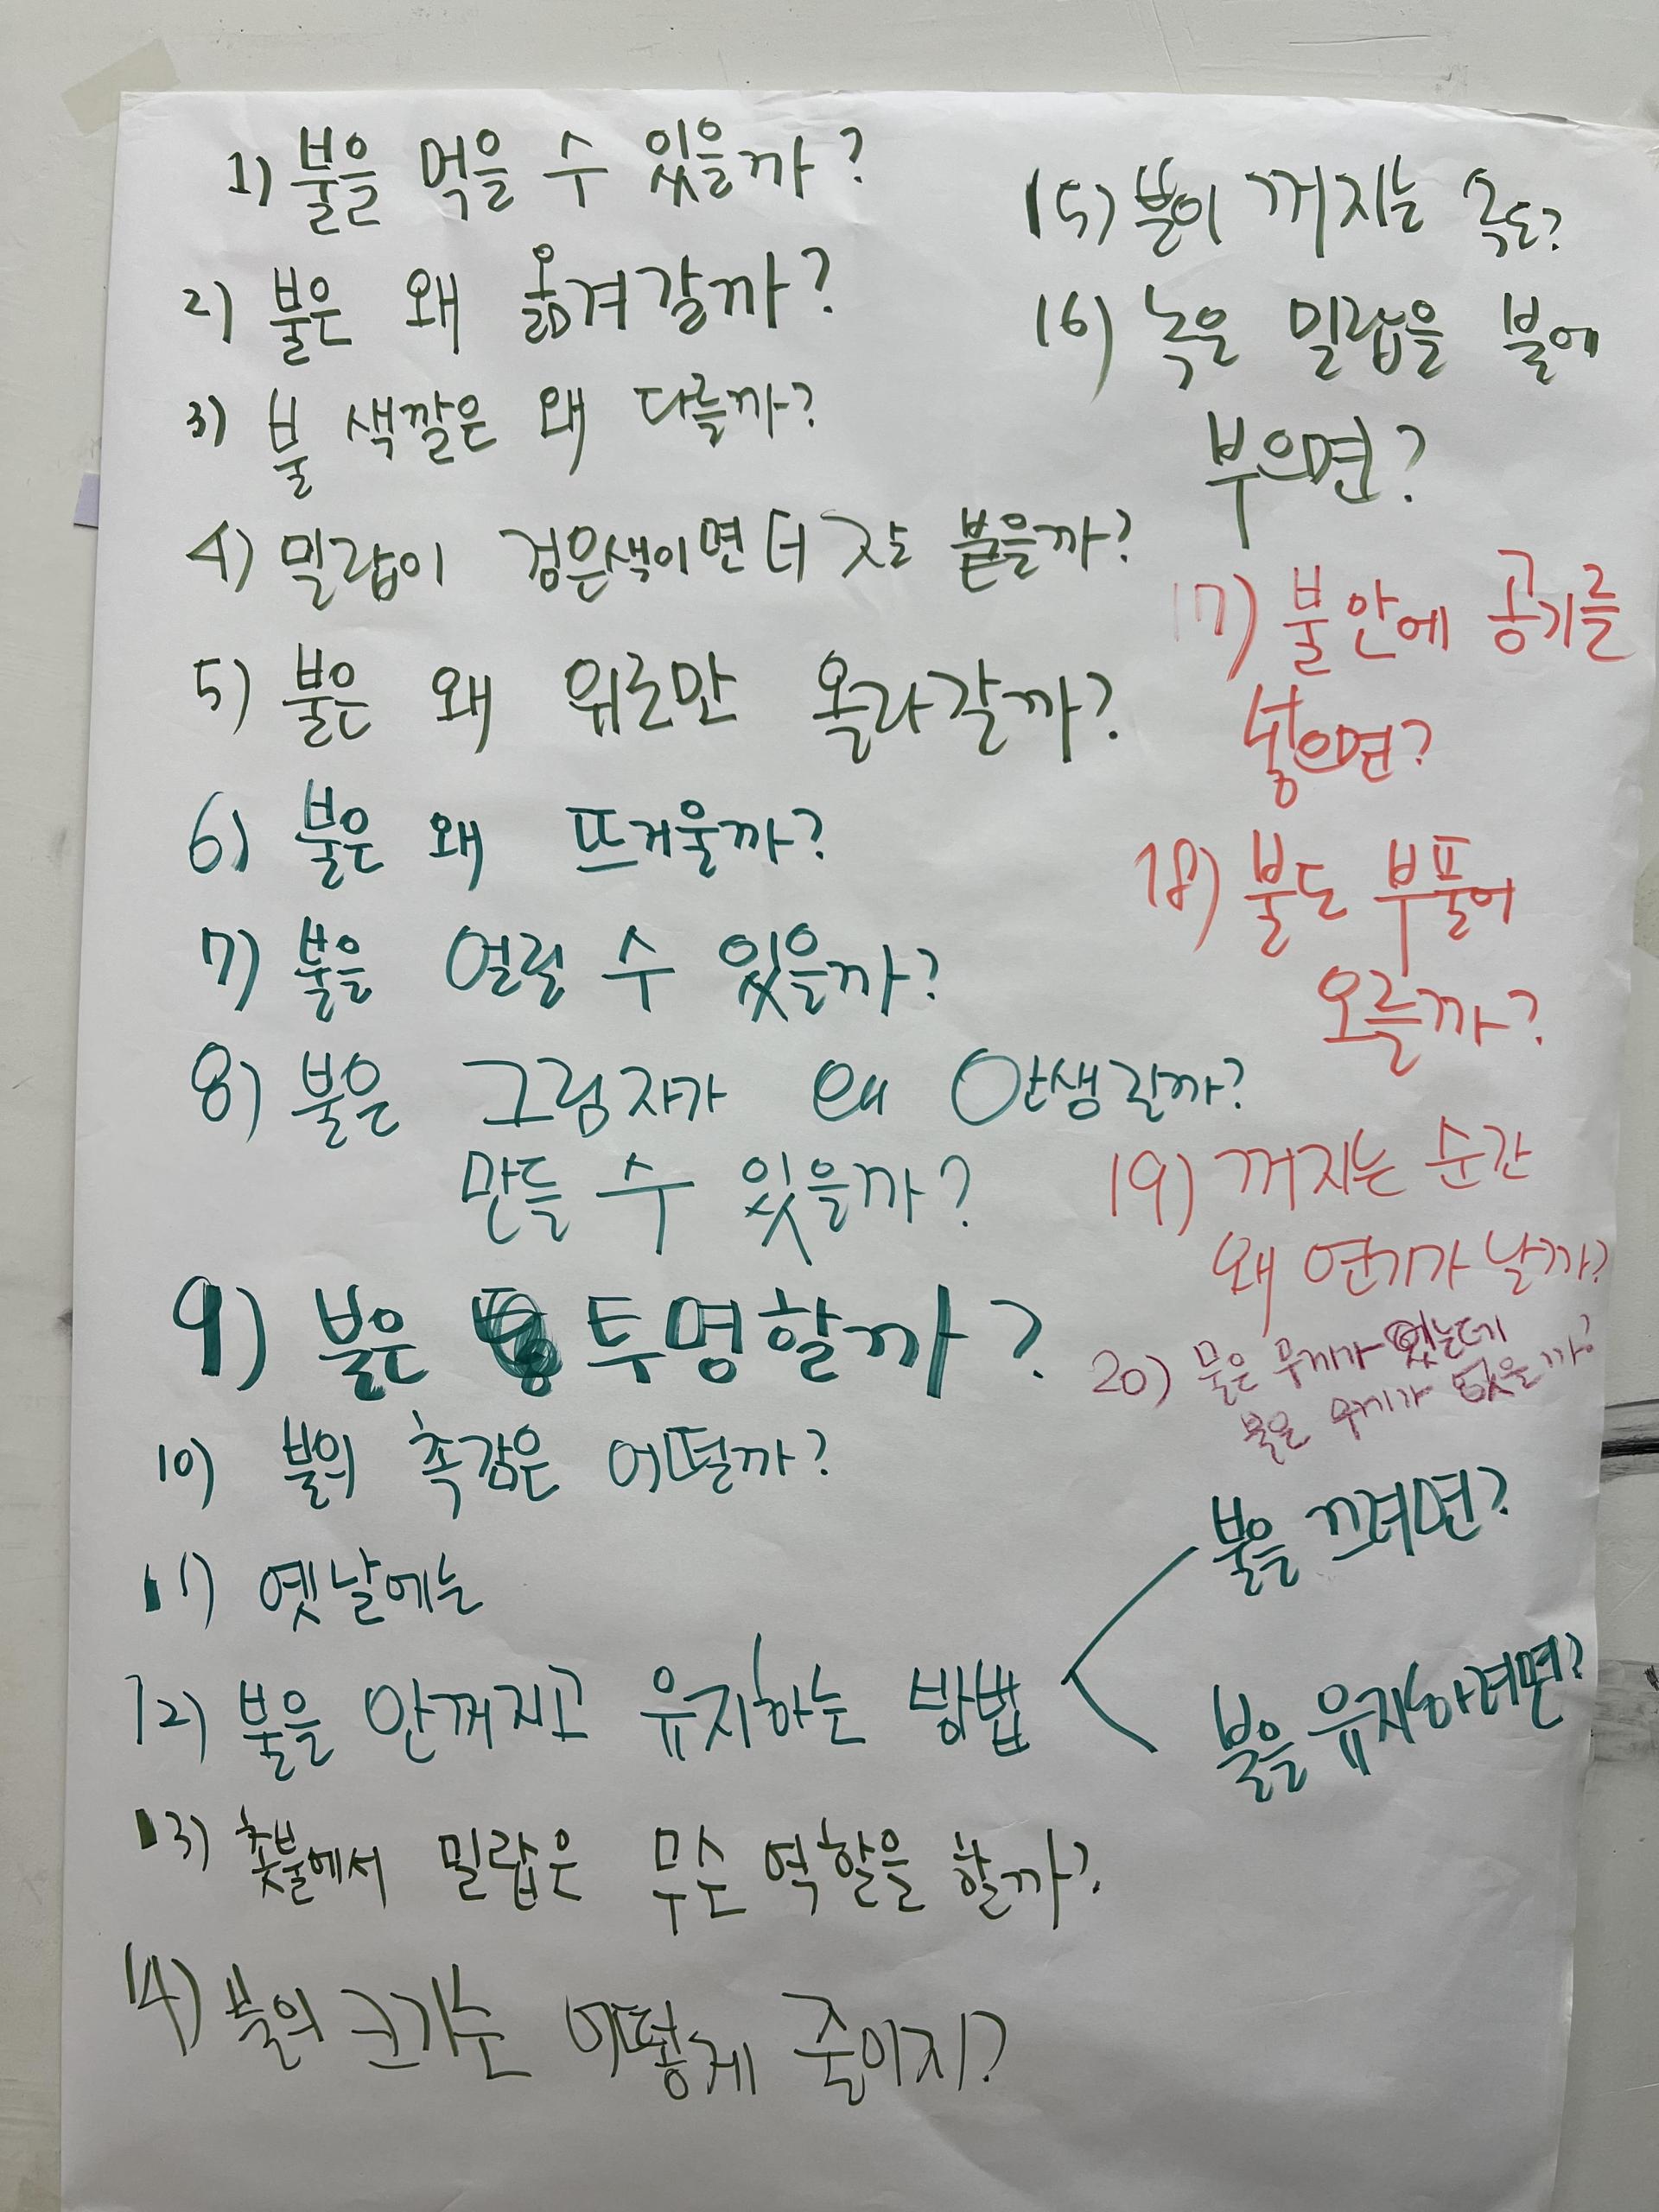 1) 불을 먹을 수 있을까?
2) 불은 왜 옮겨갈까?
3) 불 색깔은 왜 다를까?
4) 밀랍이 검은색이면 더 잘 붙을까?
5) 불은 왜 위로만 올라갈까?
6) 불은 왜 뜨거울까?
7) 불을 얼릴 수 있을까?
8) 불은 그림자가 왜 안생길까?
만들 수 있을까?
9) 불은 투명할까?
10) 불의 촉감은 어떨까?
11) 옛날에는
12) 불을 안꺼지고 유지하는 방법
불을 끄려면?
불을 유지하려면?
13) 촛불에서 밀랍은 무슨 역할을 할까?
14) 불의 크기는 어떻게 줄이지?
15) 불이 꺼지는 속도?
16) 녹은 밀랍을 불에
부으면?
17) 불안에 공기를
넣으면?
18) 불도 부풀어
오를까?
19) 꺼지는 순간
왜 연기가 날까?
20) 물은 무게가 있는데
불은 무게가 있을까?